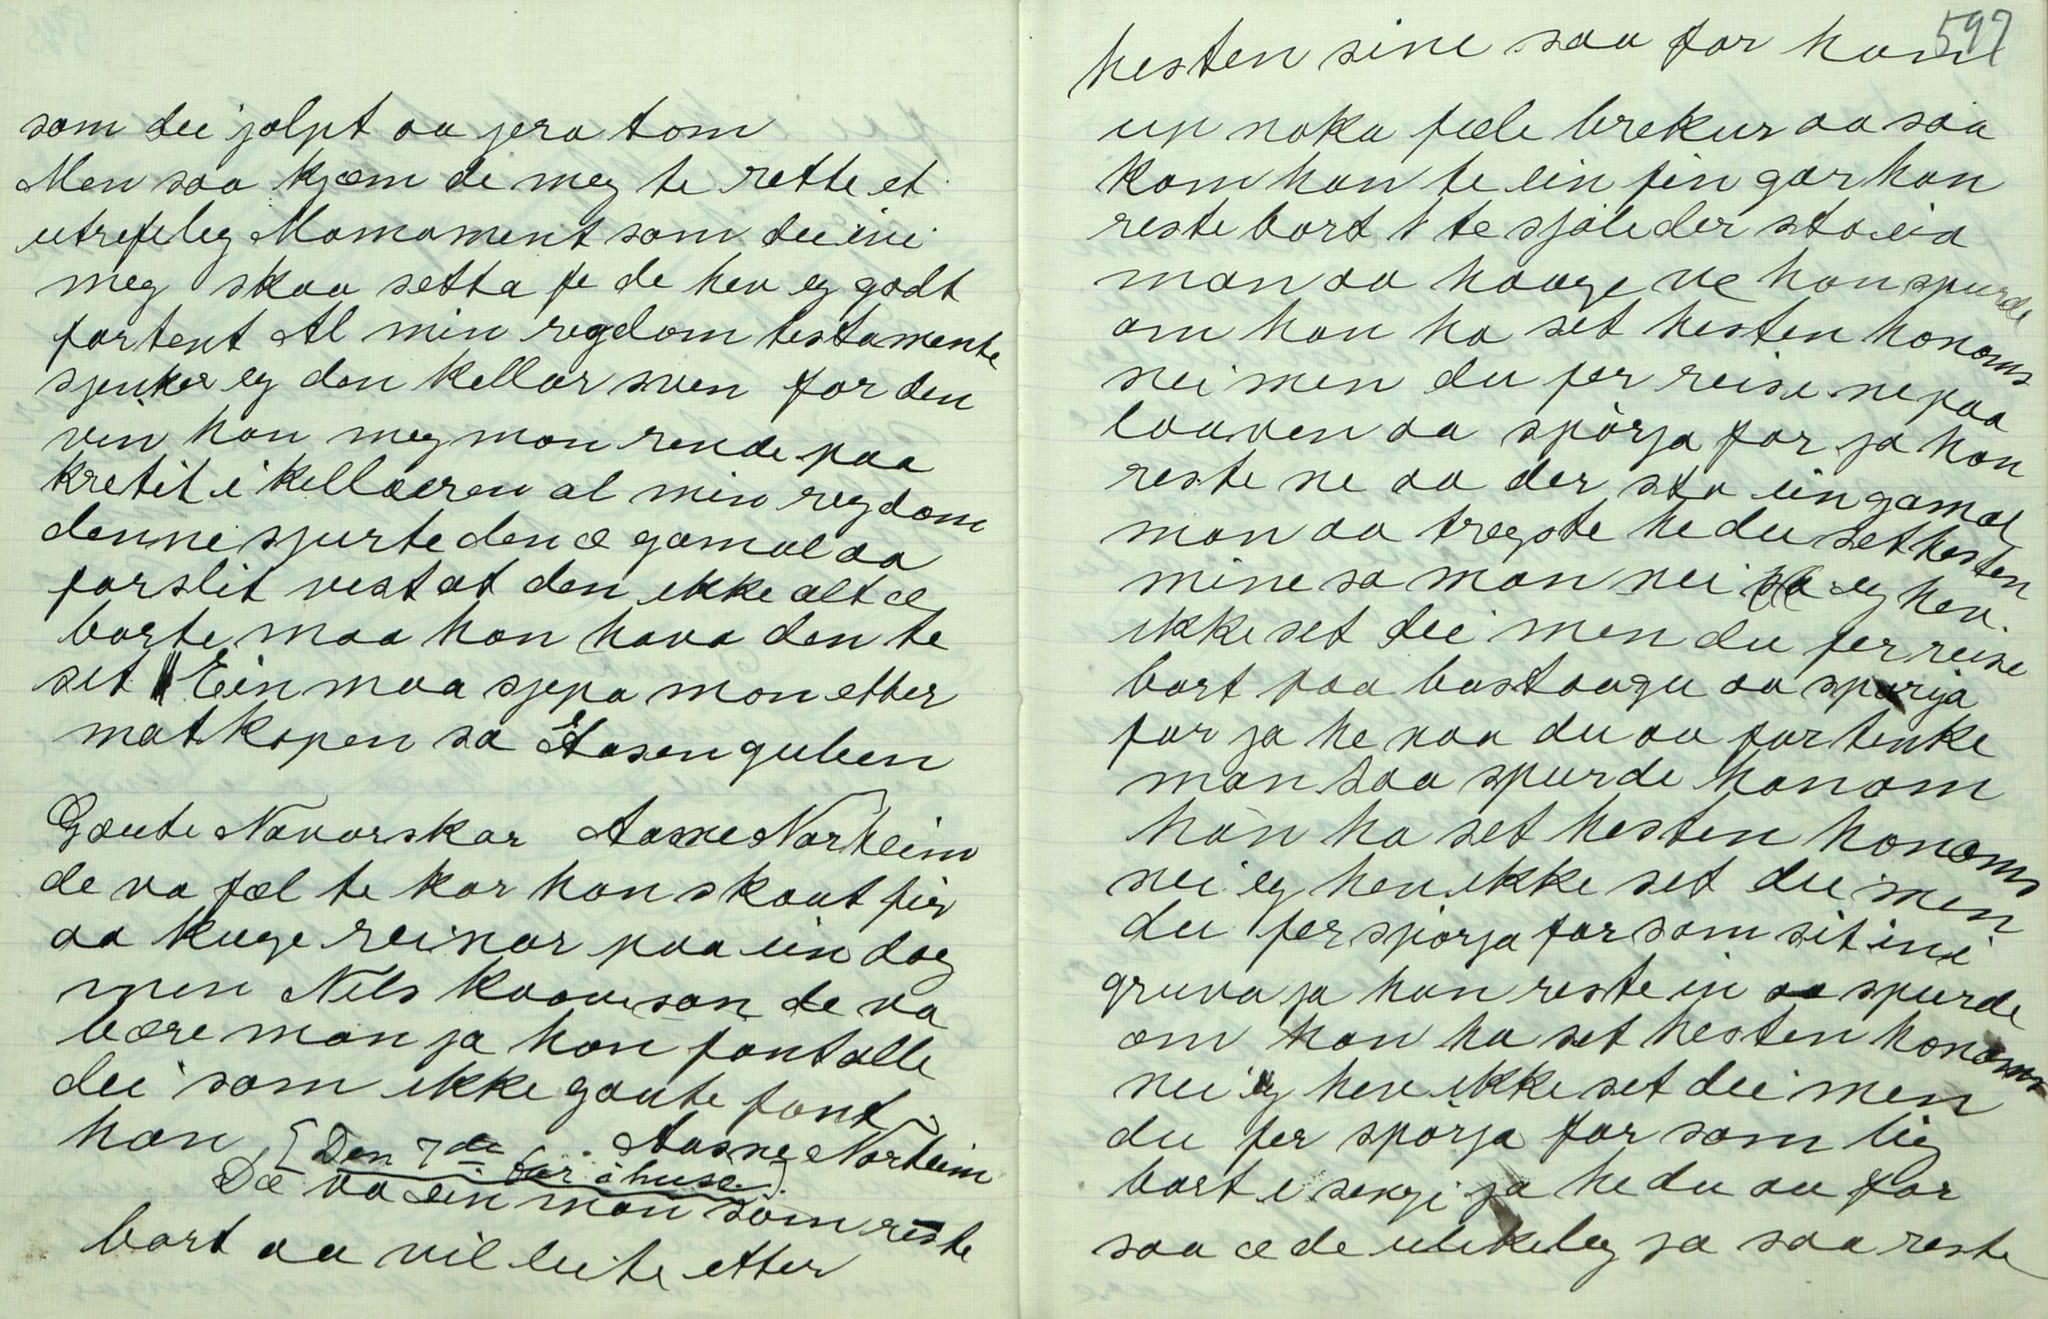 som dei jolpt aa jera tom
Men saa kjæm de meg te rette et
utrefeleg Momoment som dei ini
meg skaa setta fe de hev eg godt
fortent Al min rogdom testamente
sjenker eg den kellar sven for den
vin han meg mon rende paa
kretit i kellaeren al min rogdom
denne sjurte den æ gamal aa
forslit vest at den ikke alt æ
borte maa han hava den te
set Ein maa sjepa mon etter
matkopen sa Aasen guben
Gaute Navarskar Aasne Northeim
de va fæl te kar han skaut fir
aa kuge reinar paa ein dag
men Nels Kaaveson de va
bære man ja han fant alle
dei som ikke gaute fant
han [Den 7de far i huse] Aasne Northeim
Dæ va ein man som reste
bort aa vil leite etter
597
hesten sine saa for han
up noka fæle brekur aa saa
kom han te ein fin gar han
reste bort te sjåle der sto ein
man aa hauge ve han spurde
om han ha set hesten honoms
nei men du fer reise ne paa
laaven aa spørja far ja han
reste ne aa der sto ein gamal
man aa trægste he du set hesten
mine sa man nei eg hev
ikke set dei men du fer reise
bort paa bastaagu aa spørja
far ja he naa du aa far tenke
man saa spurde han om
han ha set hesten honoms
nei eg hev ikke set dei men
du fer spørja far som sit ini
gruva ja han reste in aa spurde
om han ha set hesten honoms
nei eg hev ikke set dei men
du fer spørja far som lig
bort i sengi ja he du aa far
saa æ de ulikeleg sa saa reste